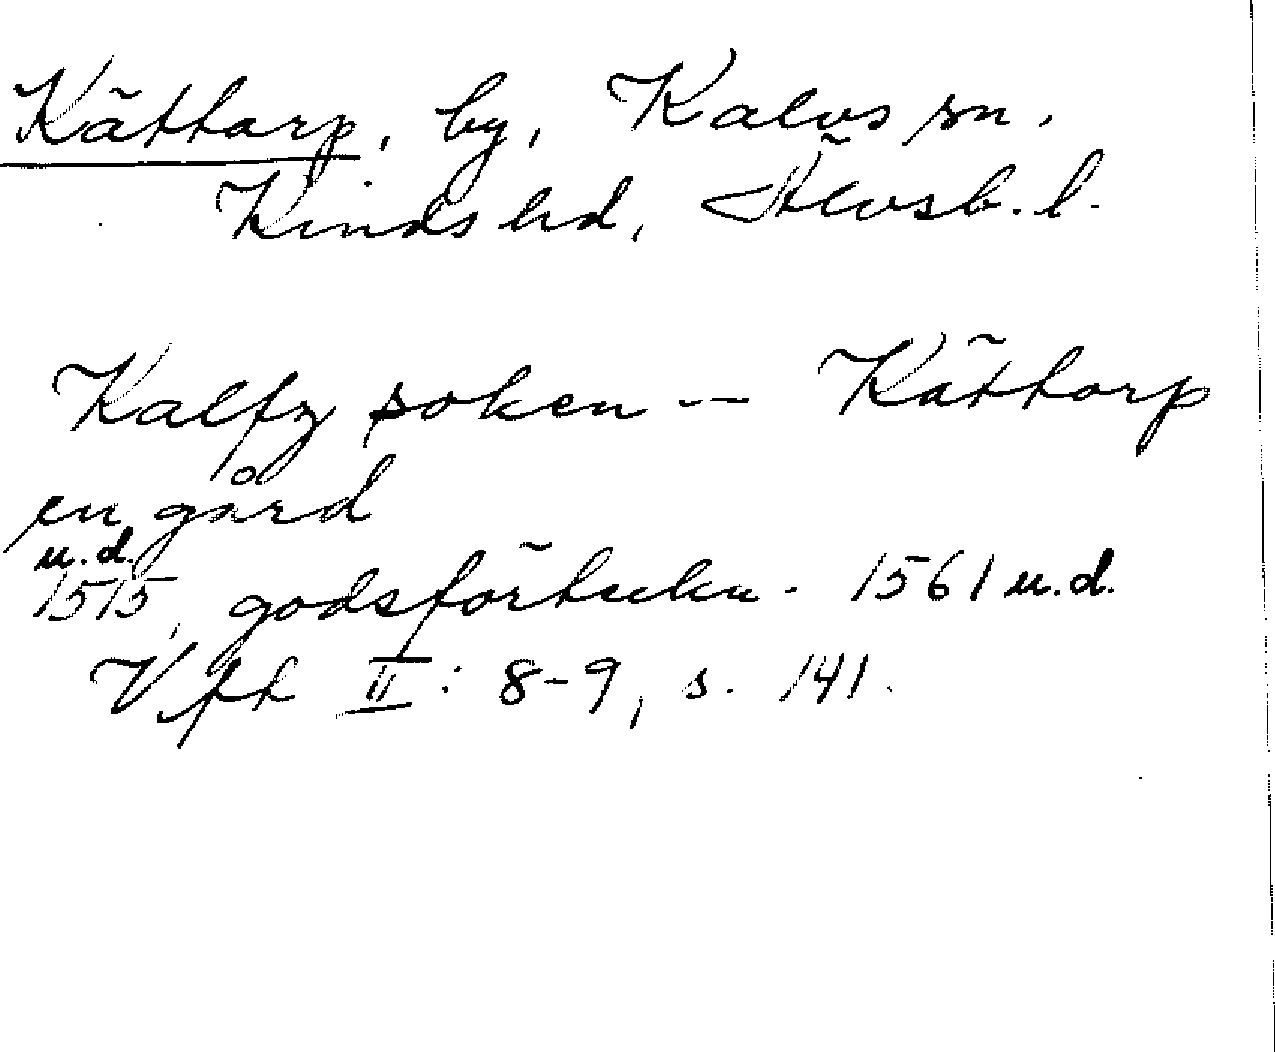 Kättarp, by, Kalvs sn.
Kinds hd, Älvsb. l.
Kalfz soken -- Kättorp
en gård
u.d.
1515, godsförteckn. 1561 u.d.
Vfh II: 8-9, s. 141.